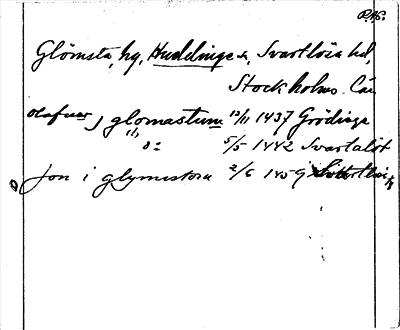 RAS.
Glömsta, by, Huddinge s., Svartlösa hd,
Stockholms Län
Olafuer j glomastum 12/11 1437 Grödinge
5/5 1442 Svartalöt
Jon i glymistora 2/6 1459